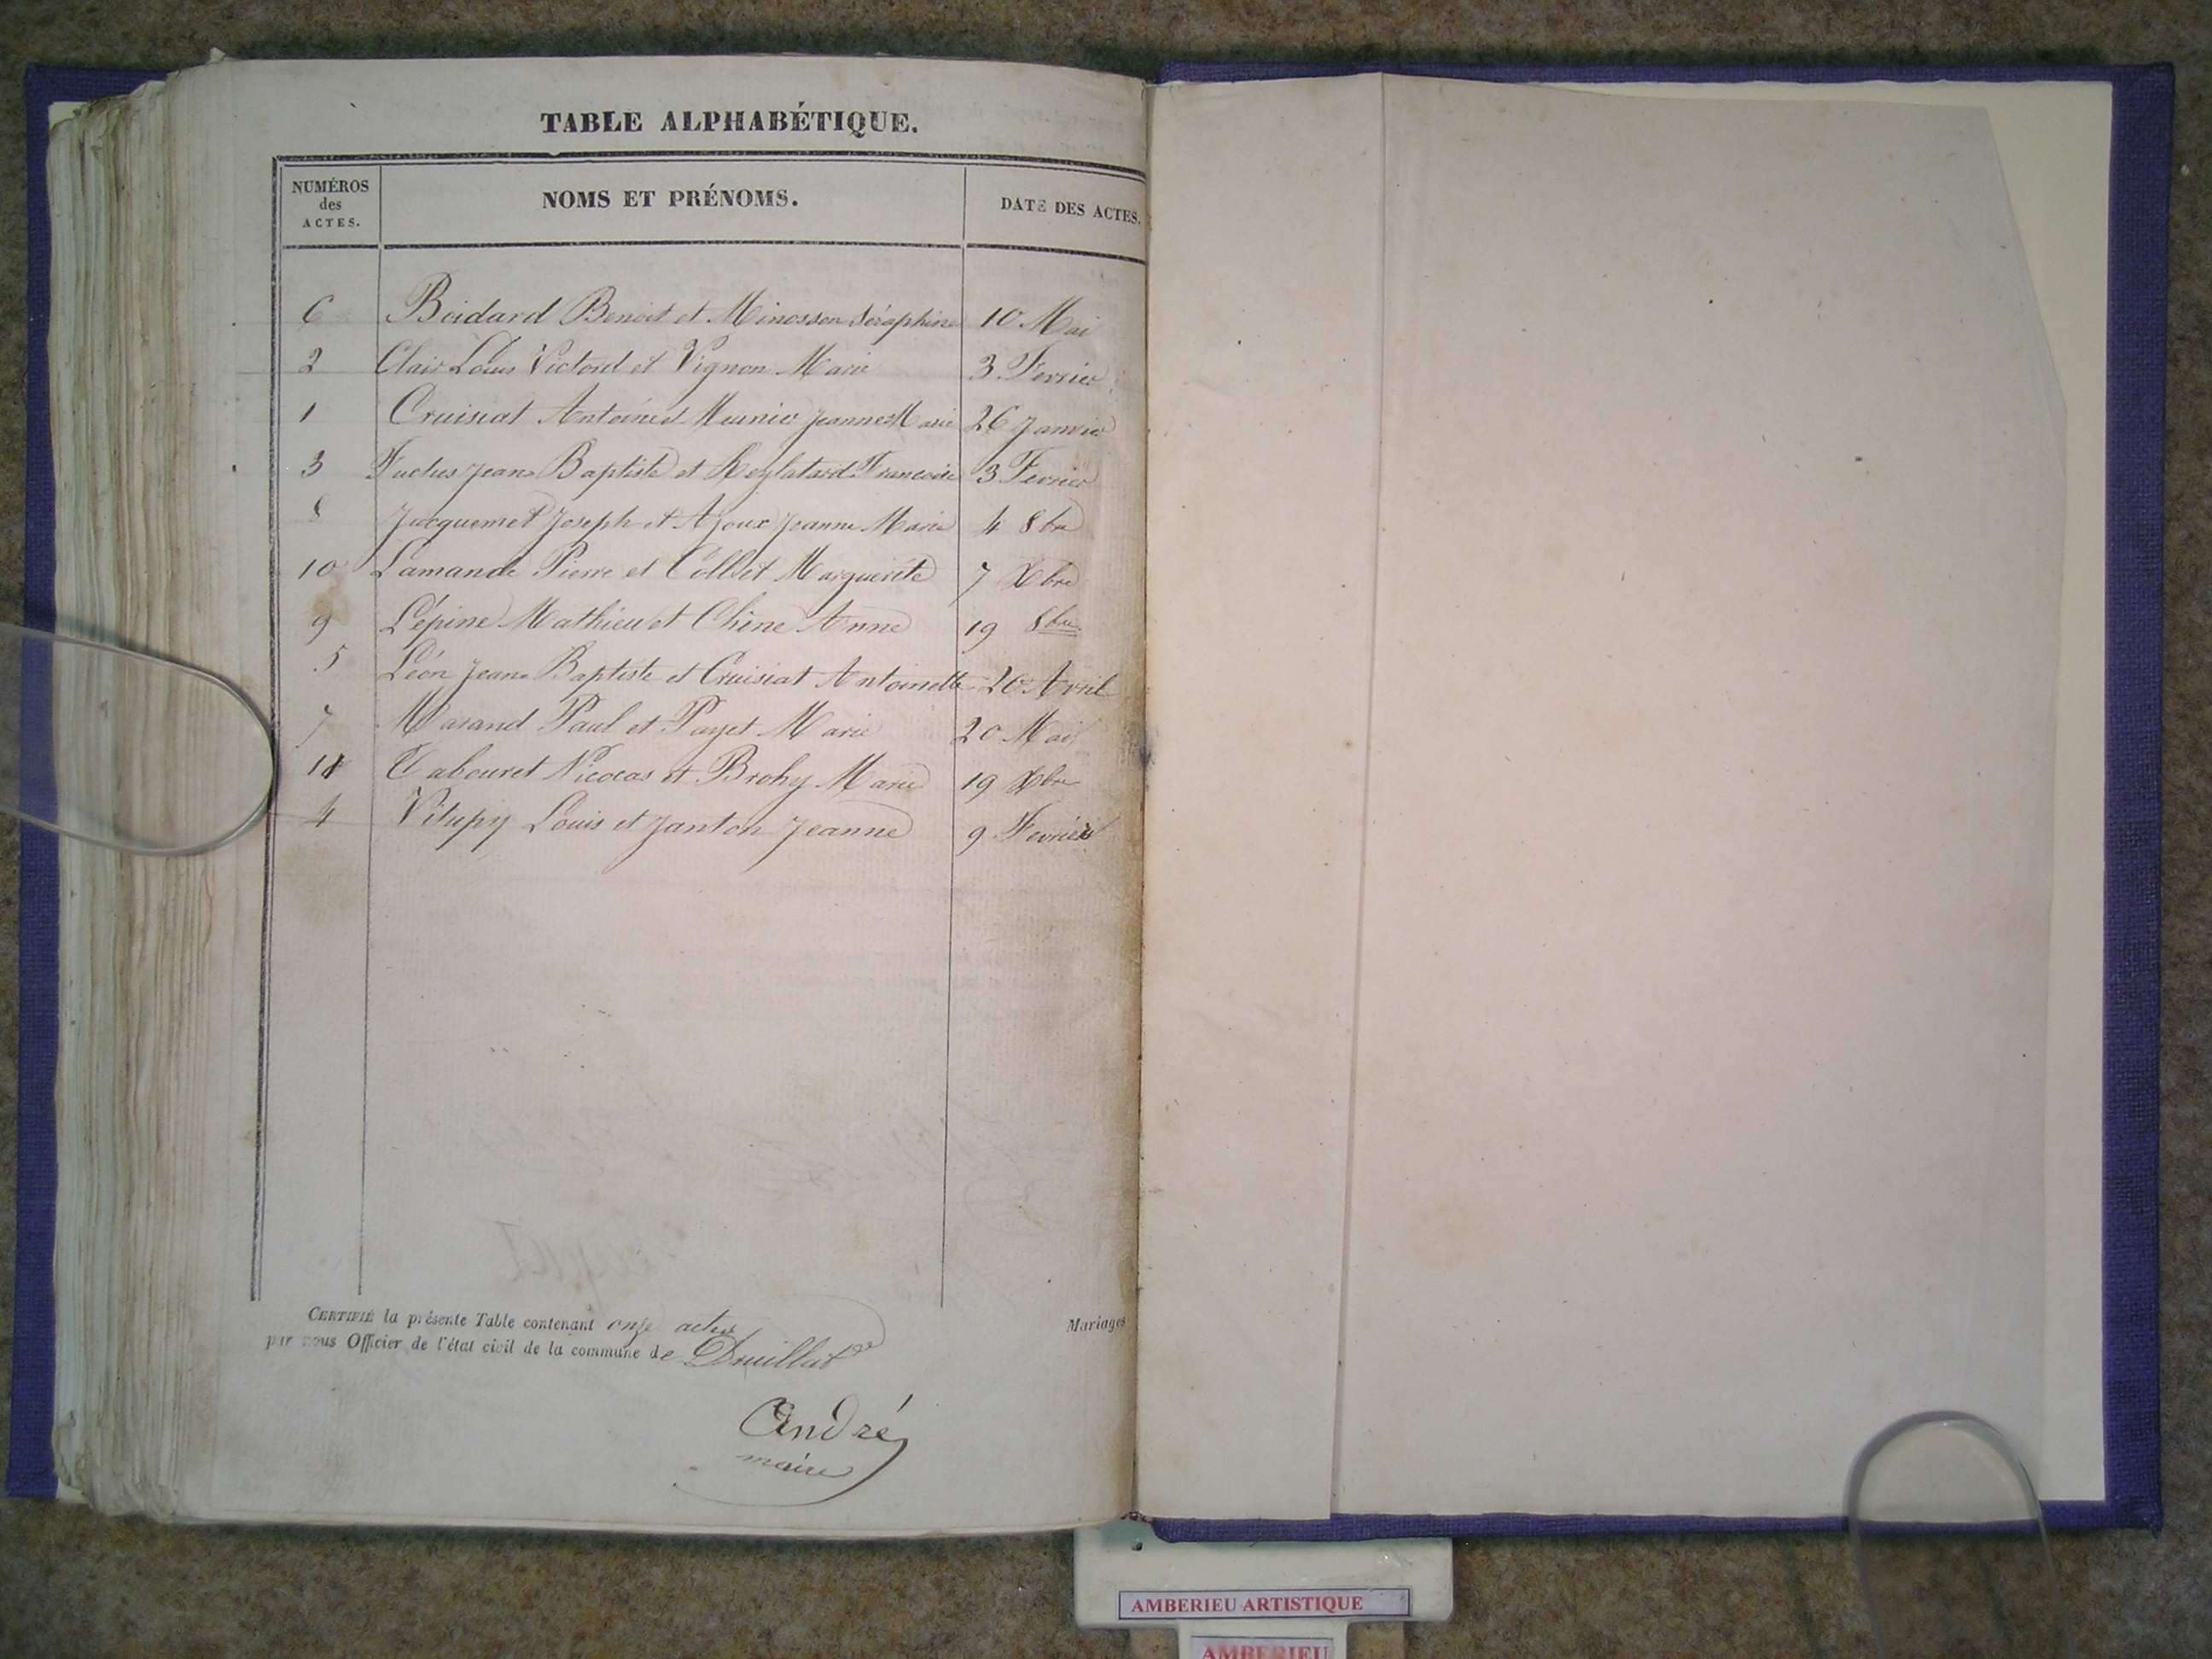 TABLE ALPHABÉTIQUE.
NUMÉROS des ACTES. NOMS ET PRÉNOMS. DATE DES ACTES.
6 Boidard Benoit et Minosson Séraphine 10 Mai
2 Clair Louis Victord et Vignon Marie 3 Fevrier
1 Cruisiat Antoine et Meunier Jeanne Marie 26 Janvier
3 Jean Baptiste et Reylatard Francoise 3 Fevrier
8 Jacquemet Joseph et Ajoux Jeanne Marie 4 8bre
10 Lamande Pierre et Collet Marguerite 7 Xbre
9 Lépine Mathieu et Chêne Anne 19 8bre
5 Léon Jean Baptiste et Cruisiat Antoinette 20 Avril
7 Marand Paul et Payet Marie 20 Mai
11 Tabouret Nicolas et Brohy Marie 19 Xbre
4 Vitupy Louis et Janton Jeanne 9 Fevrier
CERTIFIÉ la présente Table contenant onze actes Mariages
par nous Officier de l'état civil de la commune de Druillat
André
maire
AMBERIEU ARTISTIQUE
AMBERIEU